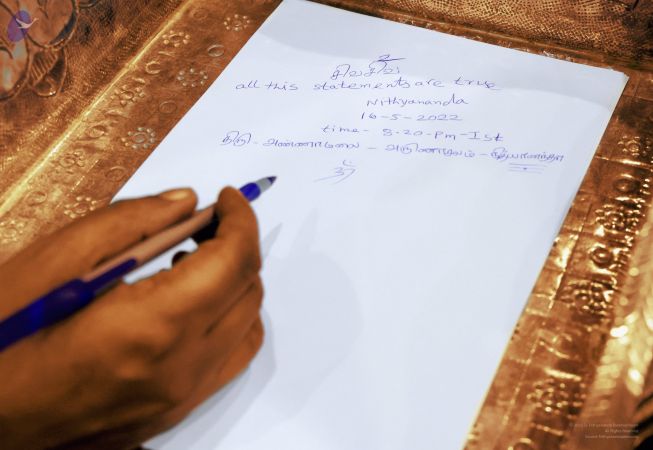 2
சிவசிவ
all this statements are true
Nithyananda
16-5-2022
time - 8-20-pm-Ist
திரு - அண்ணாமலை - அருணாசலம் - நித்யானந்தா